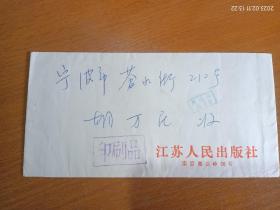 2023.02.11 15:22
宁波市苍水街212号
胡万民收
印刷品
江苏人民出版社